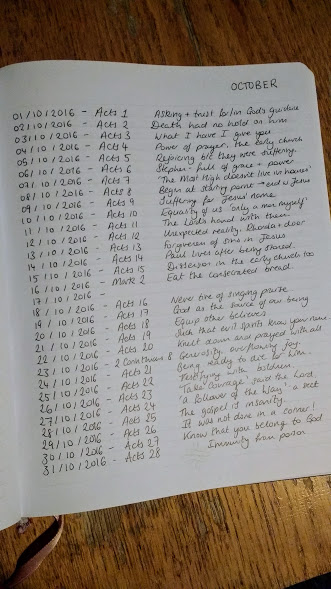 OCTOBER
01/10/2016 - Acts 1 Asking + trust for/in God's guidance
02/10/2016 - Acts 2 Death had no hold on him
03/10/2016 - Acts 3 What I have I give you
04/10/2016 - Acts 4 Power of prayer. The early church
05/10/2016 - Acts 5 Rejoicing b/c they were suffering.
06/10/2016 - Acts 6 Stephen - full of grace + power
07/10/2016 - Acts 7 'The Most High doesn't live in houses'
08/10/2016 - Acts 8 Begin at starting point → end w Jesus
09/10/2016 - Acts 9 Suffering for Jesus' name
10/10/2016 - Acts 10 Equality of us 'only a man myself'
11/10/2016 - Acts 11 The Lord's hand with them.
12/10/2016 - Acts 12 Unexpected reality: Rhoda + door
13/10/2016 - Acts 13 Forgiveness of sins in Jesus
14/10/2016 - Acts 14 Paul lives after being stoned.
15/10/2016 - Acts 15 Dissension in the early church too
16/10/2016 - Mark 2 Eat the consecrated bread.
17/10/2016 -
18/10/2016 - Acts 16 Never tire of singing praise
19/10/2016 - Acts 17 God as the source of our being
20/10/2016 - Acts 18 Equip other believers
21/10/2016 - Acts 19 Such that evil spirits know your name.
22/10/2016 - Acts 20 Knelt down and prayed with all
23/10/2016 - 2 Corinthians 8 Generosity, overflowing joy
24/10/2016 - Acts 21 Being ready to die for him.
25/10/2016 - Acts 22 Testifying with boldness.
26/10/2016 - Acts 23 'Take courage' said the Lord.
27/10/2016 - Acts 24 'a follower of the Way' a sect
28/10/2016 - Acts 25 The gospel is insanity.
29/10/2016 - Acts 26 It was not done in a corner!
30/10/2016 - Acts 27 Know that you belong to God
31/10/2016 - Acts 28 Immunity from poison